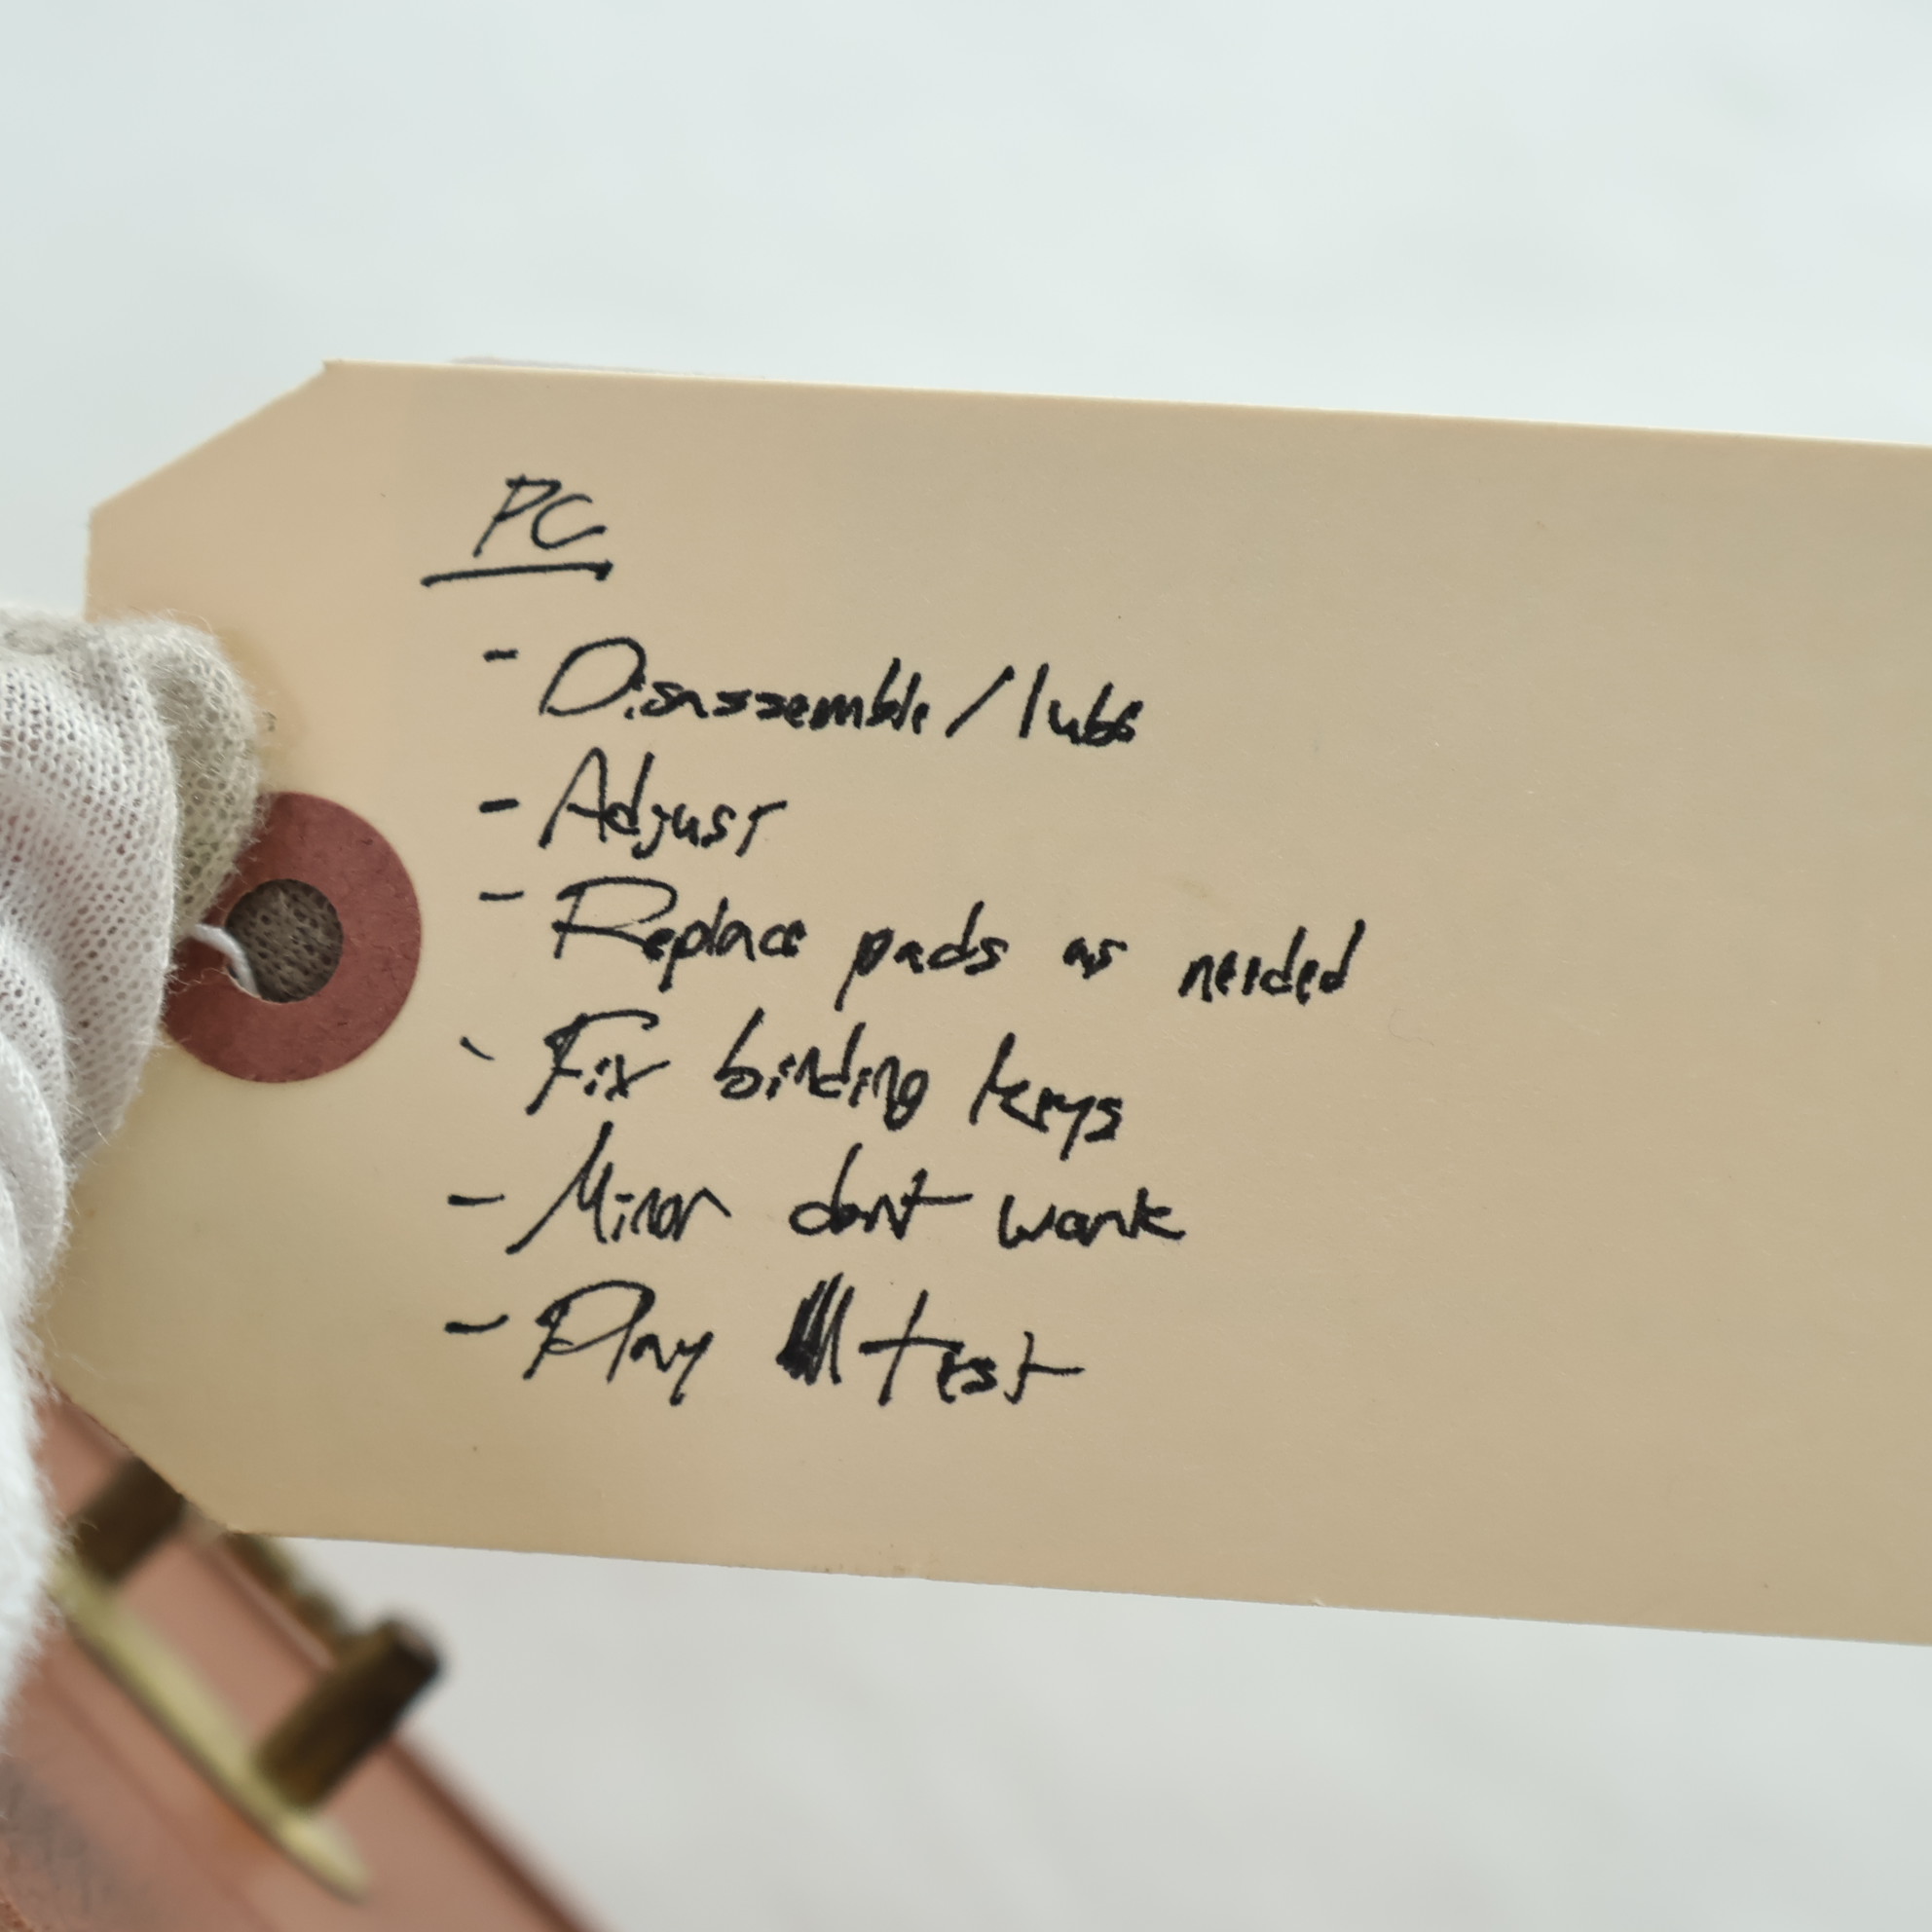 PC
- Disassemble/lube
- Adjust
- Replace pads as needed
- Fix binding keys
- Minor dent work
- Play test